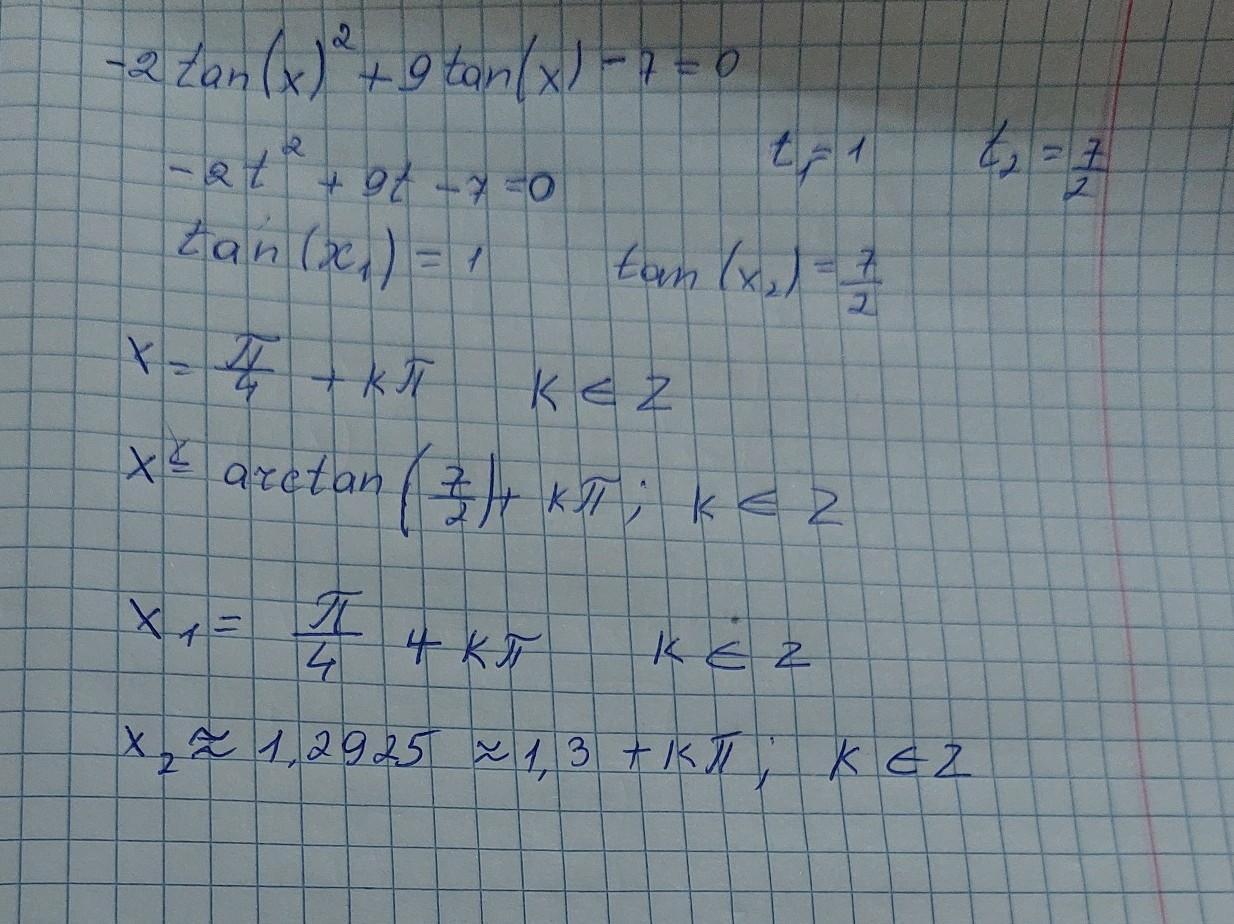 -2 tan(x)² + 9 tan(x) - 7 = 0
-2t² + 9t - 7 = 0 t₁ = 1 t₂ = 7/2
tan(x₁) = 1 tan(x₂) = 7/2
x = π/4 + kπ k ∈ Z
x = arctan(7/2) + kπ; k ∈ Z
x₁ = π/4 + kπ k ∈ Z
x₂ ≈ 1,2925 ≈ 1,3 + kπ; k ∈ Z